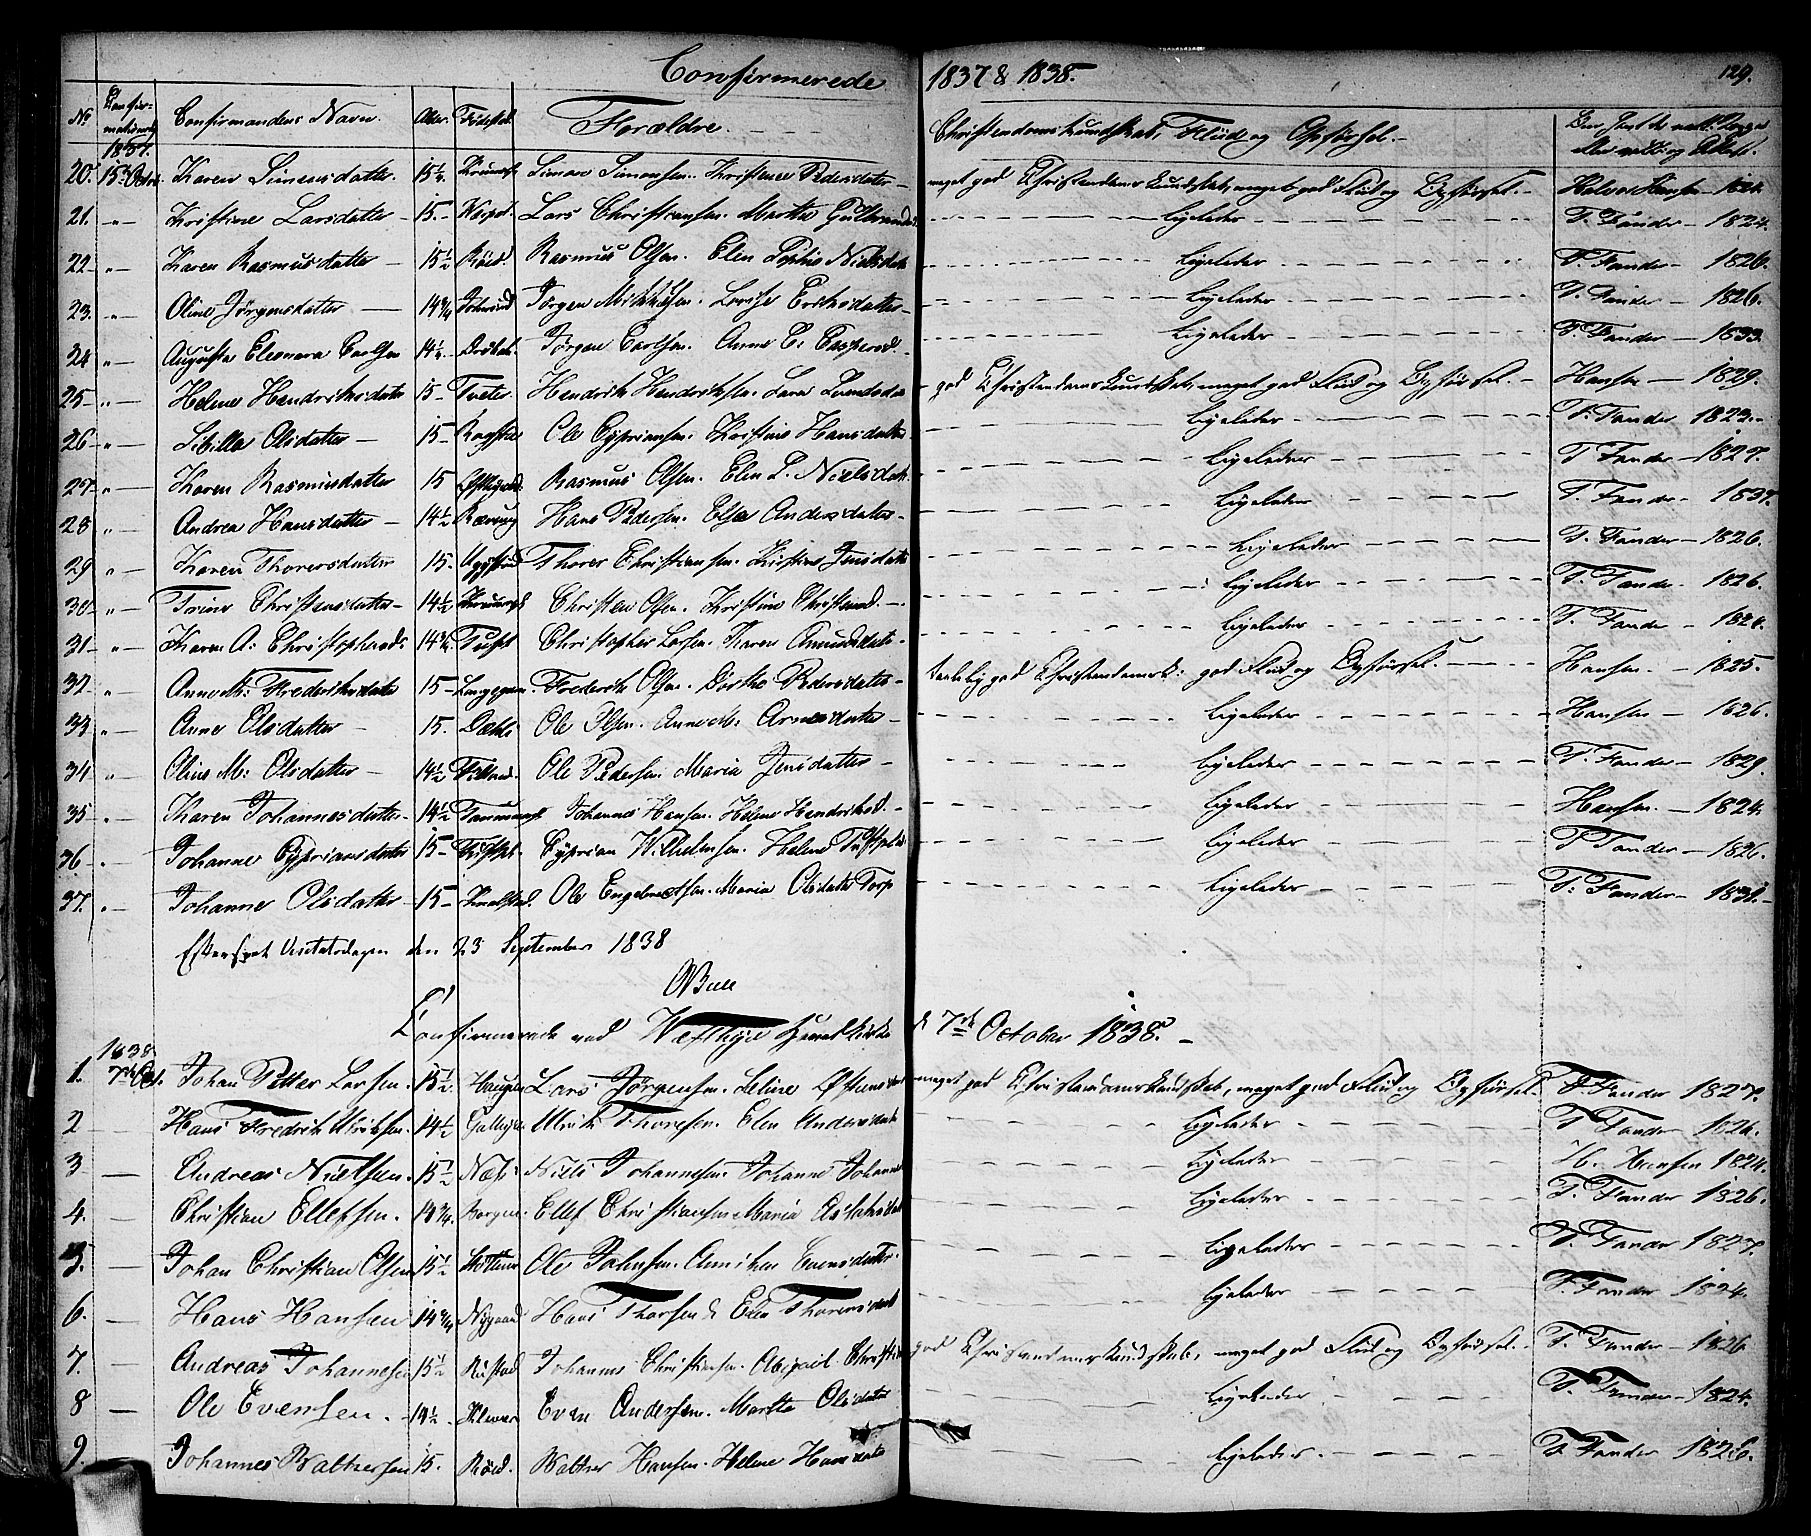 Confirmerede 1837 & 1838. 129.
No Confirmationsdag Confirmandens Navn. Alder. Fødested Forældre. Christendomskundskab, Flid og Opførsel.
1837.
20. 15de Octbr Karen Simensdatter. 15½ Simon Simonsen. Kirstine Pedersdatter meget god Christendomskundskab, meget god Flid og Opførsel. Halvor Hansen
21. " Kristine Larsdatter 15. Lars Christiansen. Marthe Ligeledes T. Fander 1824.
22 " Karen Rasmusdatter 15½ Röed. Rasmus Olsen. Elen Sophie Nielsdatt Ligeledes T. Fander 1826.
23. " Oline Jörgensdatter 14¾ Jörgen Lovise Eriksdatter Ligeledes T. Fander 1826.
24 " Augusta Eleonora Carlsen 14½ Jörgen Carlsen. Anne C. Caspersd. Ligeledes T. Fander 1833.
25 " Helene Hendriksdatter 15 Tveter Hendrik Hendriksen. god Christendomskundskab, meget god Flid og Opførsel. Hansen 1829.
26 " Sibilla Olsdatter 15 Ole Cypriansen. Kristine Hansdatter Ligeledes T. Fander
27 " Karen Rasmusdatter 15 Rasmus Olsen. Elen P. Nielsdatt. Ligeledes T Fander 1827.
28 " Andrea Hansdatter 14½ Hans Pedersen. Else Andersdatter Ligeledes T. Fander 1837.
29 " Karen Thorersdatter 15. Thorer Christiansen. Kirstine Jensdatter Ligeledes T. Fander 1826.
30 " Trine Christensdatter 14½ Christen Olsen. Kristine Christensd. Ligeledes T. Fander 1826.
31 " Karen A: Christophersd. 14¾ Christopher Larsen. Karen Amundsdatt. Ligeledes T. Fander
32 " Anne M: Frederiksdatter 15 Frederik Olsen. Dorthe Pedersdatter taalelig god Christendomsk: god Flid og Opførsel. Hansen 1825.
33 " Anne Olsdatter 15. Dæhli Ole Olsen. Anne M: Arnesdatter Ligeledes Hansen 1826.
34 " Oline M: Olsdatter 14½ Ole Pedersen Maria Jensdatter Ligeledes T. Fander 1829.
35 " Karen Johannesdatter 14½ Johannes Hansen. Helene Hendriksd. Ligeledes Hansen. 1824.
36 " Johanne Cypriansdatter 15 Cyprian Wilhelmsen. Helene Ligeledes T Fander 1826.
37. " Johanne Olsdatter 15 Ole Engebretsen. Maria Olsdatter Torp Ligeledes T: Fander 1831.
Efterseet Visitatsdagen den 23 September 1838
Bull
Confirmerede ved Westbye Hovedkirke d 7de October 1838.
1838
1. 7de Oct. Johan Petter Larsen. 15½ Haugen Lars Jörgensen. Leline meget god Christendomskundskab, meget god Flid og Opførsel. T. Fander 1827.
2 Hans Fredrik Ulriksen. 14½ Ulrik Thoresen. Elen Andersdatt Ligeledes T Fander 1826.
3 Andreas Nielsen. 15½ Næs Niels Johannesen. Johanne Johannes Ligeledes H. Hansen 1824.
4. Christian Ellefsen. 14¾ Borgen Ellef Christiansen. Maria Aslaksdatt Ligeledes T. Fander 1826.
5. Johan Christian Olsen 15½ Ole Johnsen. Evensdatter. Ligeledes T. Fander 1827.
6. Hans Hansen 14¾ Nygaard Hans Thorsen & Elen Thoresdatt Ligeledes T. Fander 1824.
7. Andreas Johannesen 15½ Rustad Johannes Christiansen. Abigael Christia god Christendomskundskab, meget god Flid og Opførsel. T. Fander 1826
8 Ole Evensen. 14½ Even Andersen. Marthe Olsdatter Ligeledes T. Fander 1824.
9. Johannes Waltersen 15. Röed. Walter Hansen. Helene Hansdatt Ligeledes. T Fander 1826.